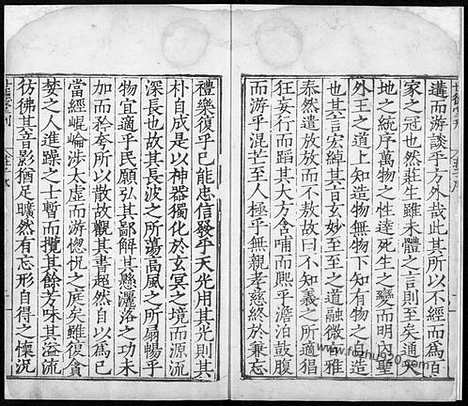 遘而游談乎方外哉此其所以不經而為百
家之冠也然莊生雖未體之言則至矣通天
地之統序萬物之性達死生之變而明內聖
外王之道上知造物無物下知有物之自造
也其言宏綽其旨玄妙至至之道融微旨雅
泰然遣放放而不敖故曰不知義之所適猖
狂妄行而蹈其大方含哺而熙乎澹泊鼓腹
而游乎混芒至人極乎無親孝慈終於兼忘
禮樂復乎已能忠信發乎天光用其光則其
朴自成是以神器獨化於玄冥之境而源流
深長也故其長波之所蕩高風之所扇暢乎
物宜適乎民願弘其鄙解其懸灑落之功未
加而矜夸所以散故觀其書超然自以為已
當經崐崙涉太虛而游惚怳之庭矣雖復貪
婪之人進躁之士暫而攬其餘芳味其溢流
彷彿其音影猶足曠然有忘形自得之懷況